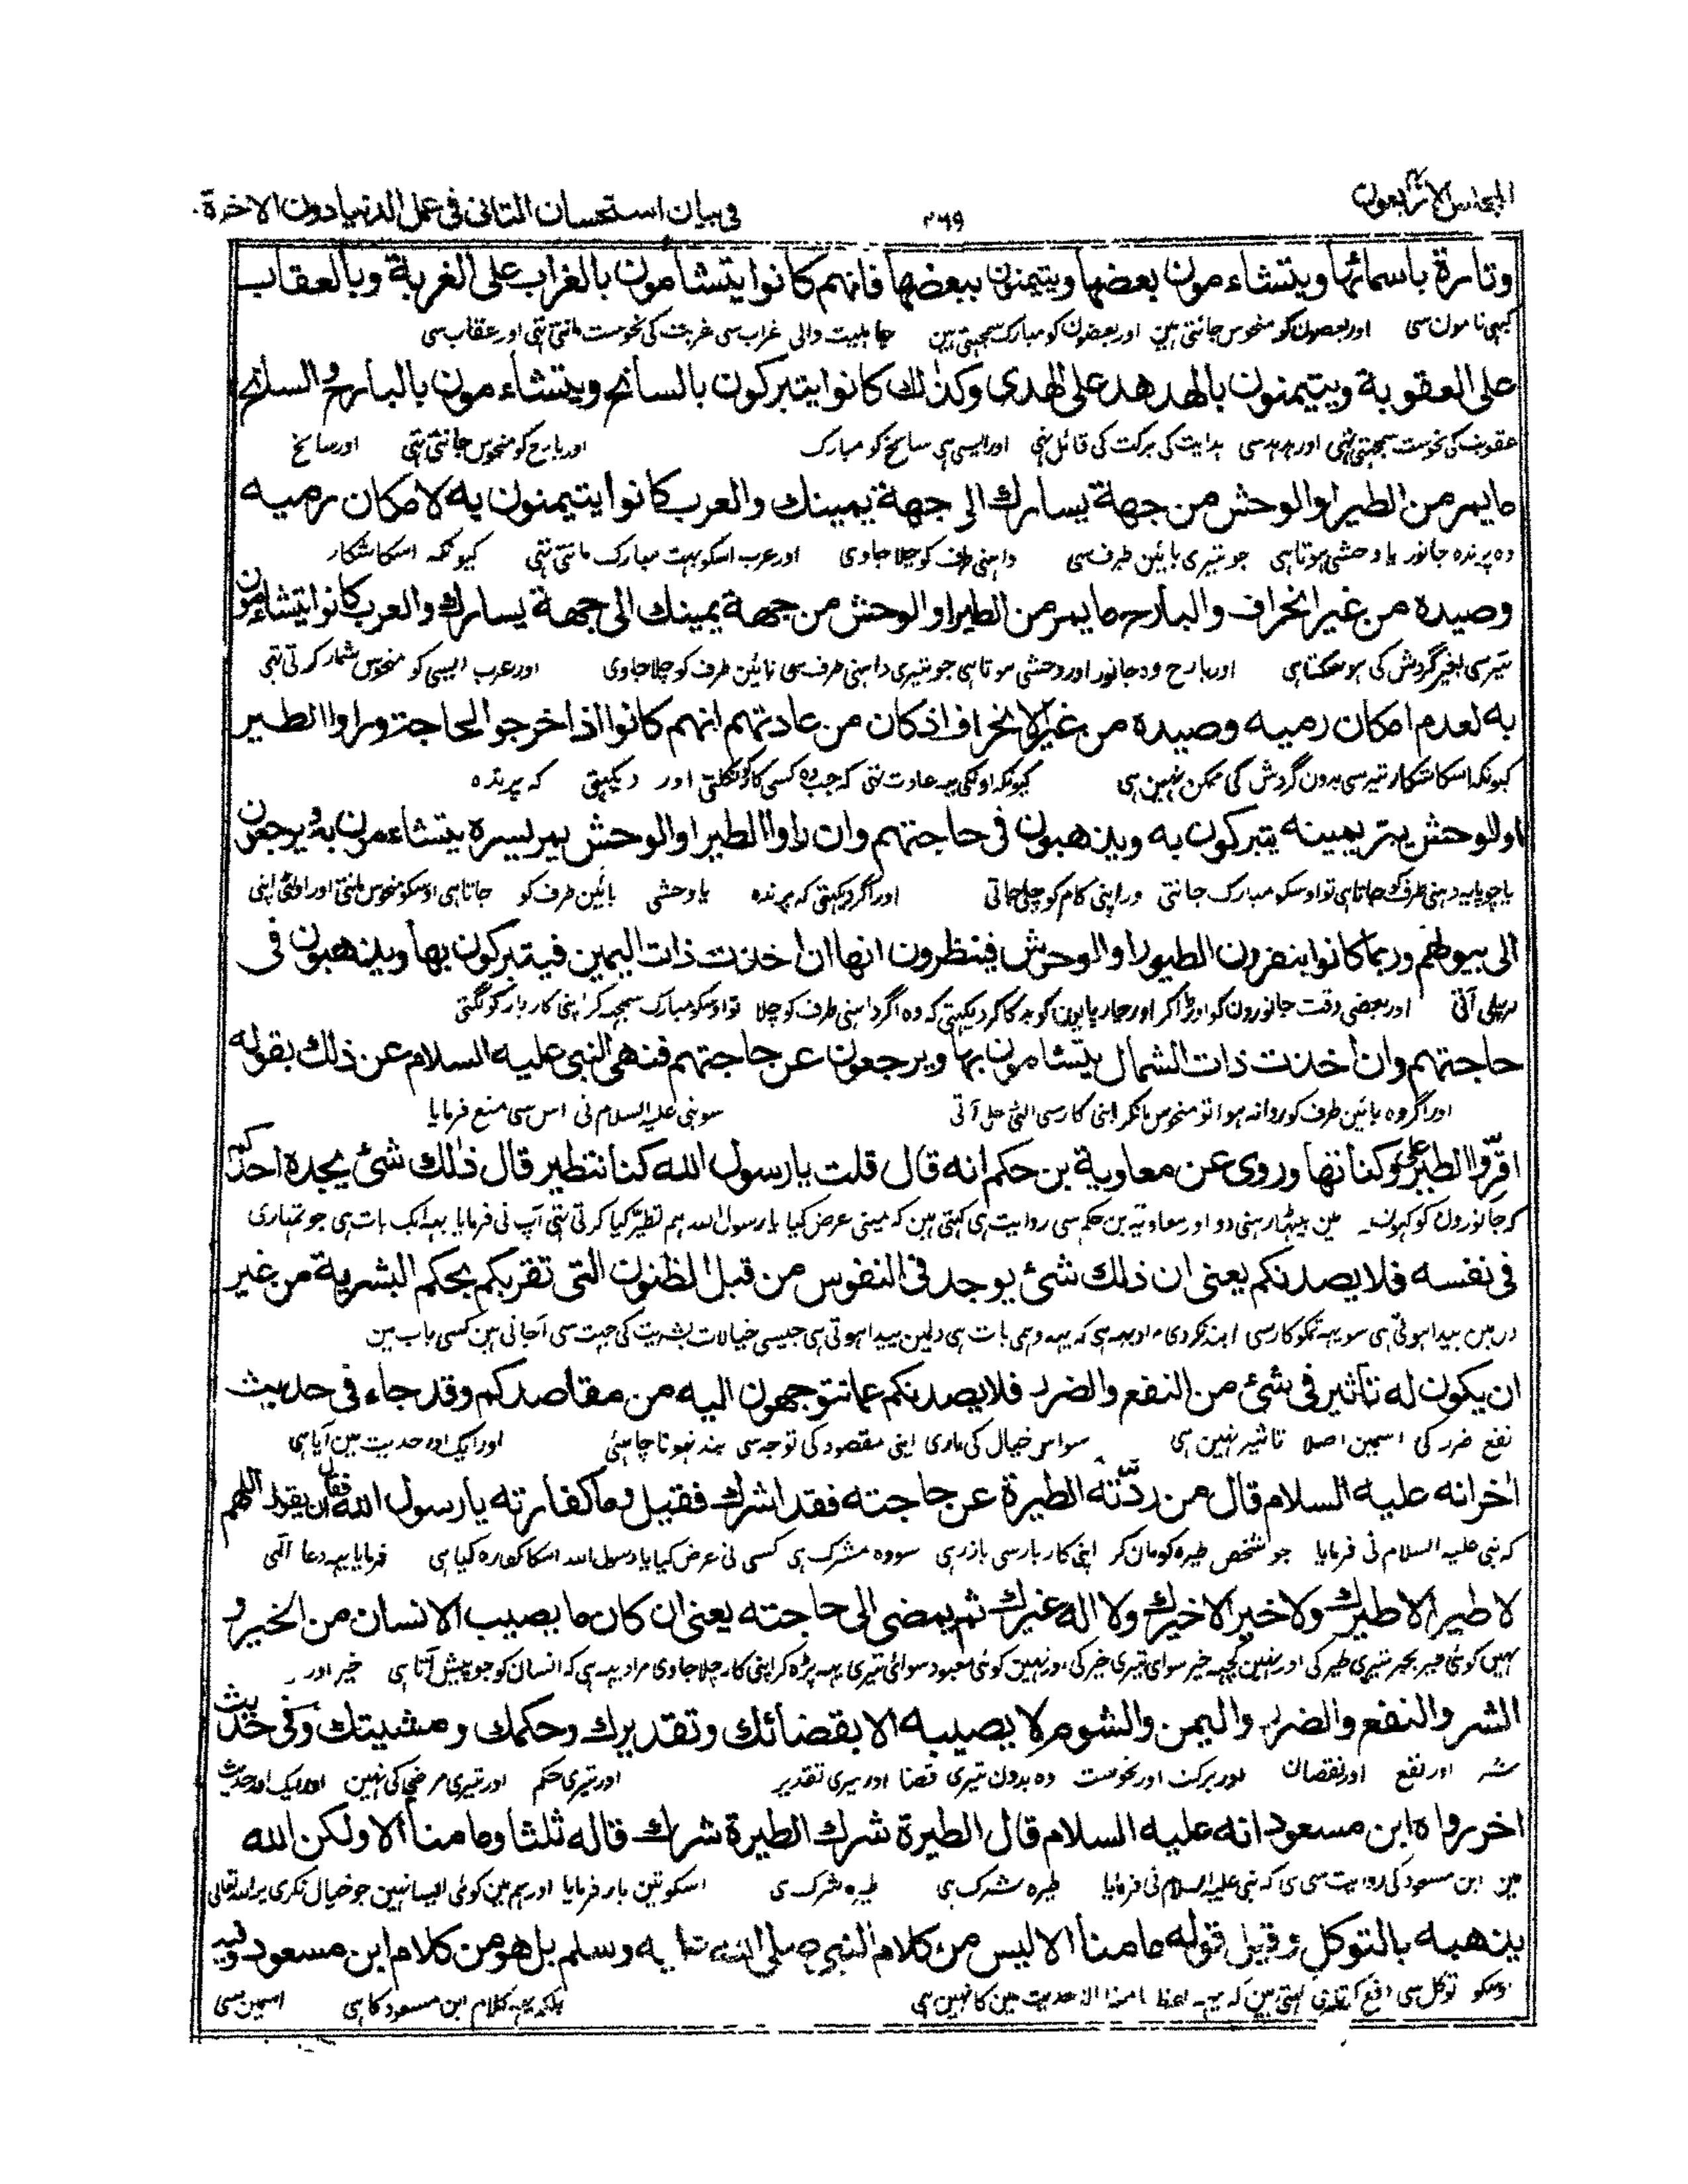 المجلس الاربعون
۲۶۹
في بيان استحسان التاني في عمل الدنيا دون الاخرة
وتارة باسمائها ويتشاءمون بعضها ويتيمنون ببعضها فانهم كانوا يتشامون بالغراب على الغربة وبالعقاب
کبهی نامون سی اور بعضون کو منحوس جانتی ہین اور بعضون کو مبارک سمجہتی ہین جاہلیت والی غراب سی غربت کی نحوست مانتی تہی اور عقاب سی
على العقوبة ويتيمنون بالهدهد على الهدى وكذلك كانوا يتبركون بالسانح ويتشاءمون بالبارح والسانح
عقوبت کی نحوست سمجہتی تہی اور ہدہد سی ہدایت کی برکت کی قائل تہی اور ایسی ہی سانح کو مبارک اور بارح کو منحوس جانتی تہی اور سانح
ما يمر من الطير او الوحش من جهة يسارك الى جهة يمينك والعرب كانوا يتيمنون به لامكان رميه
وہ پرندہ جانور یا وحشی ہوتا ہی جو تیری بائین طرف سی داہنی طرف کو چلا جاوی اور عرب اسکو بہت مبارک مانتی تہی کیونکہ اسکا شکار
وصيده من غير انحراف والبارح ما يمر من الطير او الوحش من جهة يمينك الى جهة يسارك والعرب كانوا يتشاءمون
تیر سی بغیر گردش کی ہو سکتا ہی اور بارح وہ جانور اور وحشی ہوتا ہی جو تیری داہنی طرف سی بائین طرف کو چلا جاوی اور عرب ایسی کو منحوس شمار کرتی تہی
به لعدم امكان رميه وصيده من غير الانحراف اذ كان من عادتهم انهم كانوا اذا خرجوا لحاجة وراوا الطير
کیونکہ اسکا شکار تیر سی بدون گردش کی ممکن نہین ہی کیونکہ اونکی یہ عادت تہی کہ جب وہ کسی کام کو نکلتی اور دیکہتی کہ پرندہ
او الوحش يمر يمينه يتبركون به ويذهبون في حاجتهم وان راوا الطير او الوحش يمر يسره يتشاءمون به ويرجعون
یا چوپایہ دہنی طرف کو جاتا ہی تو اوسکو مبارک جانتی اور اپنی کام کو چلی جاتی اور اگر دیکہتی کہ پرندہ یا وحشی بائین طرف کو جاتا ہی اوسکو منحوس مانتی اور اولٹی اپنی
الى بيوتهم وربما كانوا ينفرون الطيور او الوحوش فينظرون انها ان اخذت ذات اليمين فيتبركون بها ويذهبون في
اور بعضی وقت جانورون کو اوڑا کر اور چار پایون کو بہکا کر دیکہتی کہ وہ اگر داہنی طرف کو چلا تو اوسکو مبارک سمجہہ کر اپنی کار بار کو لگتی
حاجتهم وان اخذت ذات الشمال يتشامون بها ويرجعون عن حاجتهم فنهى النبي عليه السلام عن ذلك بقوله
اور اگر وہ بائین طرف کو روانہ ہوا تو منحوس مانکر اپنی کار سی الٹی چلی آتی سو نبی علیہ السلام نی اس سی منع فرمایا
اقروا الطير على وكناتها وروى عن معاوية بن حكم انه قال قلت يا رسول الله كنا نتطير قال ذلك شئ يجده احدكم
کہ جانورون کو مین بیٹہا رہنی دو اور معاویہ بن حکم سی روایت ہی کہتی ہین کہ مینی عرض کیا یا رسول اللہ ہم تطیر کیا کرتی تہی آپ نی فرمایا یہہ ایک بات ہی جو تمہاری
في نفسه فلا يصدنكم يعني ان ذلك شئ يوجد في النفوس من قبل الظنون التي تقربكم بحكم البشرية من غير
پیدا ہوتی ہی سو یہہ تمکو کار سی کہ یہہ وہمی بات ہی دلمین پیدا ہوتی ہی جیسی خیالات بشریت کی جہت سی آجاتی ہین کسی باب مین
ان يكون له تاثير في شئ من النفع والضرر فلا يصدنكم عما تتوجهون اليه من مقاصدكم وقد جاء في حديث
نفع ضرر کی اسمین اصلا تاثیر نہین ہی سو اس خیال کی ماری اپنی مقصود کی توجہ سی بند نہونا چاہئی اور ایک اور حدیث مین آیا ہی
اخر انه عليه السلام قال من ردّته الطيرة عن حاجته فقد اشرك فقيل وما كفارته يا رسول الله فقال ان يقول اللهم
کہ نبی علیہ السلام نی فرمایا جو شخص طیرہ کو مان کر اپنی کار بار سی باز رہی سو وہ مشرک ہی کسی نی عرض کیا یا رسول اللہ اسکا کفارہ کیا ہی فرمایا یہہ دعا آلہی
لا طير الا طيرك ولا خير الا خيرك ولا اله غيرك ثم يمضى الى حاجته يعني ان كان ما يصيب الانسان من الخير و
نہین کوئی طیر بجز تیری طیر کی اور نہین کچہہ خیر سوای تیری خیر کی اور نہین کوئی معبود سوائی تیری یہہ پڑہ کر اپنی کار چلا جاوی مراد یہہ ہی کہ انسان کو جو پیش آتا ہی خیر اور
الشر والنفع والضرر واليمن والشوم لا يصيبه الا بقضائك وتقديرك وحكمك ومشيتك وفى حديث
شر اور نفع اور نقصان اور برکت اور نحوست وہ بدون تیری قضا اور تیری تقدیر اور تیری حکم اور تیری مرضی کی نہین اور ایک اور حدیث
اخر رواه ابن مسعود انه عليه السلام قال الطيرة شرك الطيرة شرك قاله ثلثا وما منا الا ولكن الله
مین ابن مسعود کی روایت سی ہی کہ نبی علیہ السلام نی فرمایا طیرہ شرک ہی طیرہ شرک ہی اسکو تین بار فرمایا اور ہم مین کوئی ایسا نہین جو خیال نکری پر اللہ تعالی
يذهبه بالتوكل وقيل قوله ما منا الا ليس من كلام النبي صلى الله عليه وسلم بل هو من كلام ابن مسعود وليس
توکل سی دفع کہتی ہین کہ یہہ لفظ ما منا الا حدیث مین کا نہین ہی بلکہ یہہ کلام ابن مسعود کا ہی